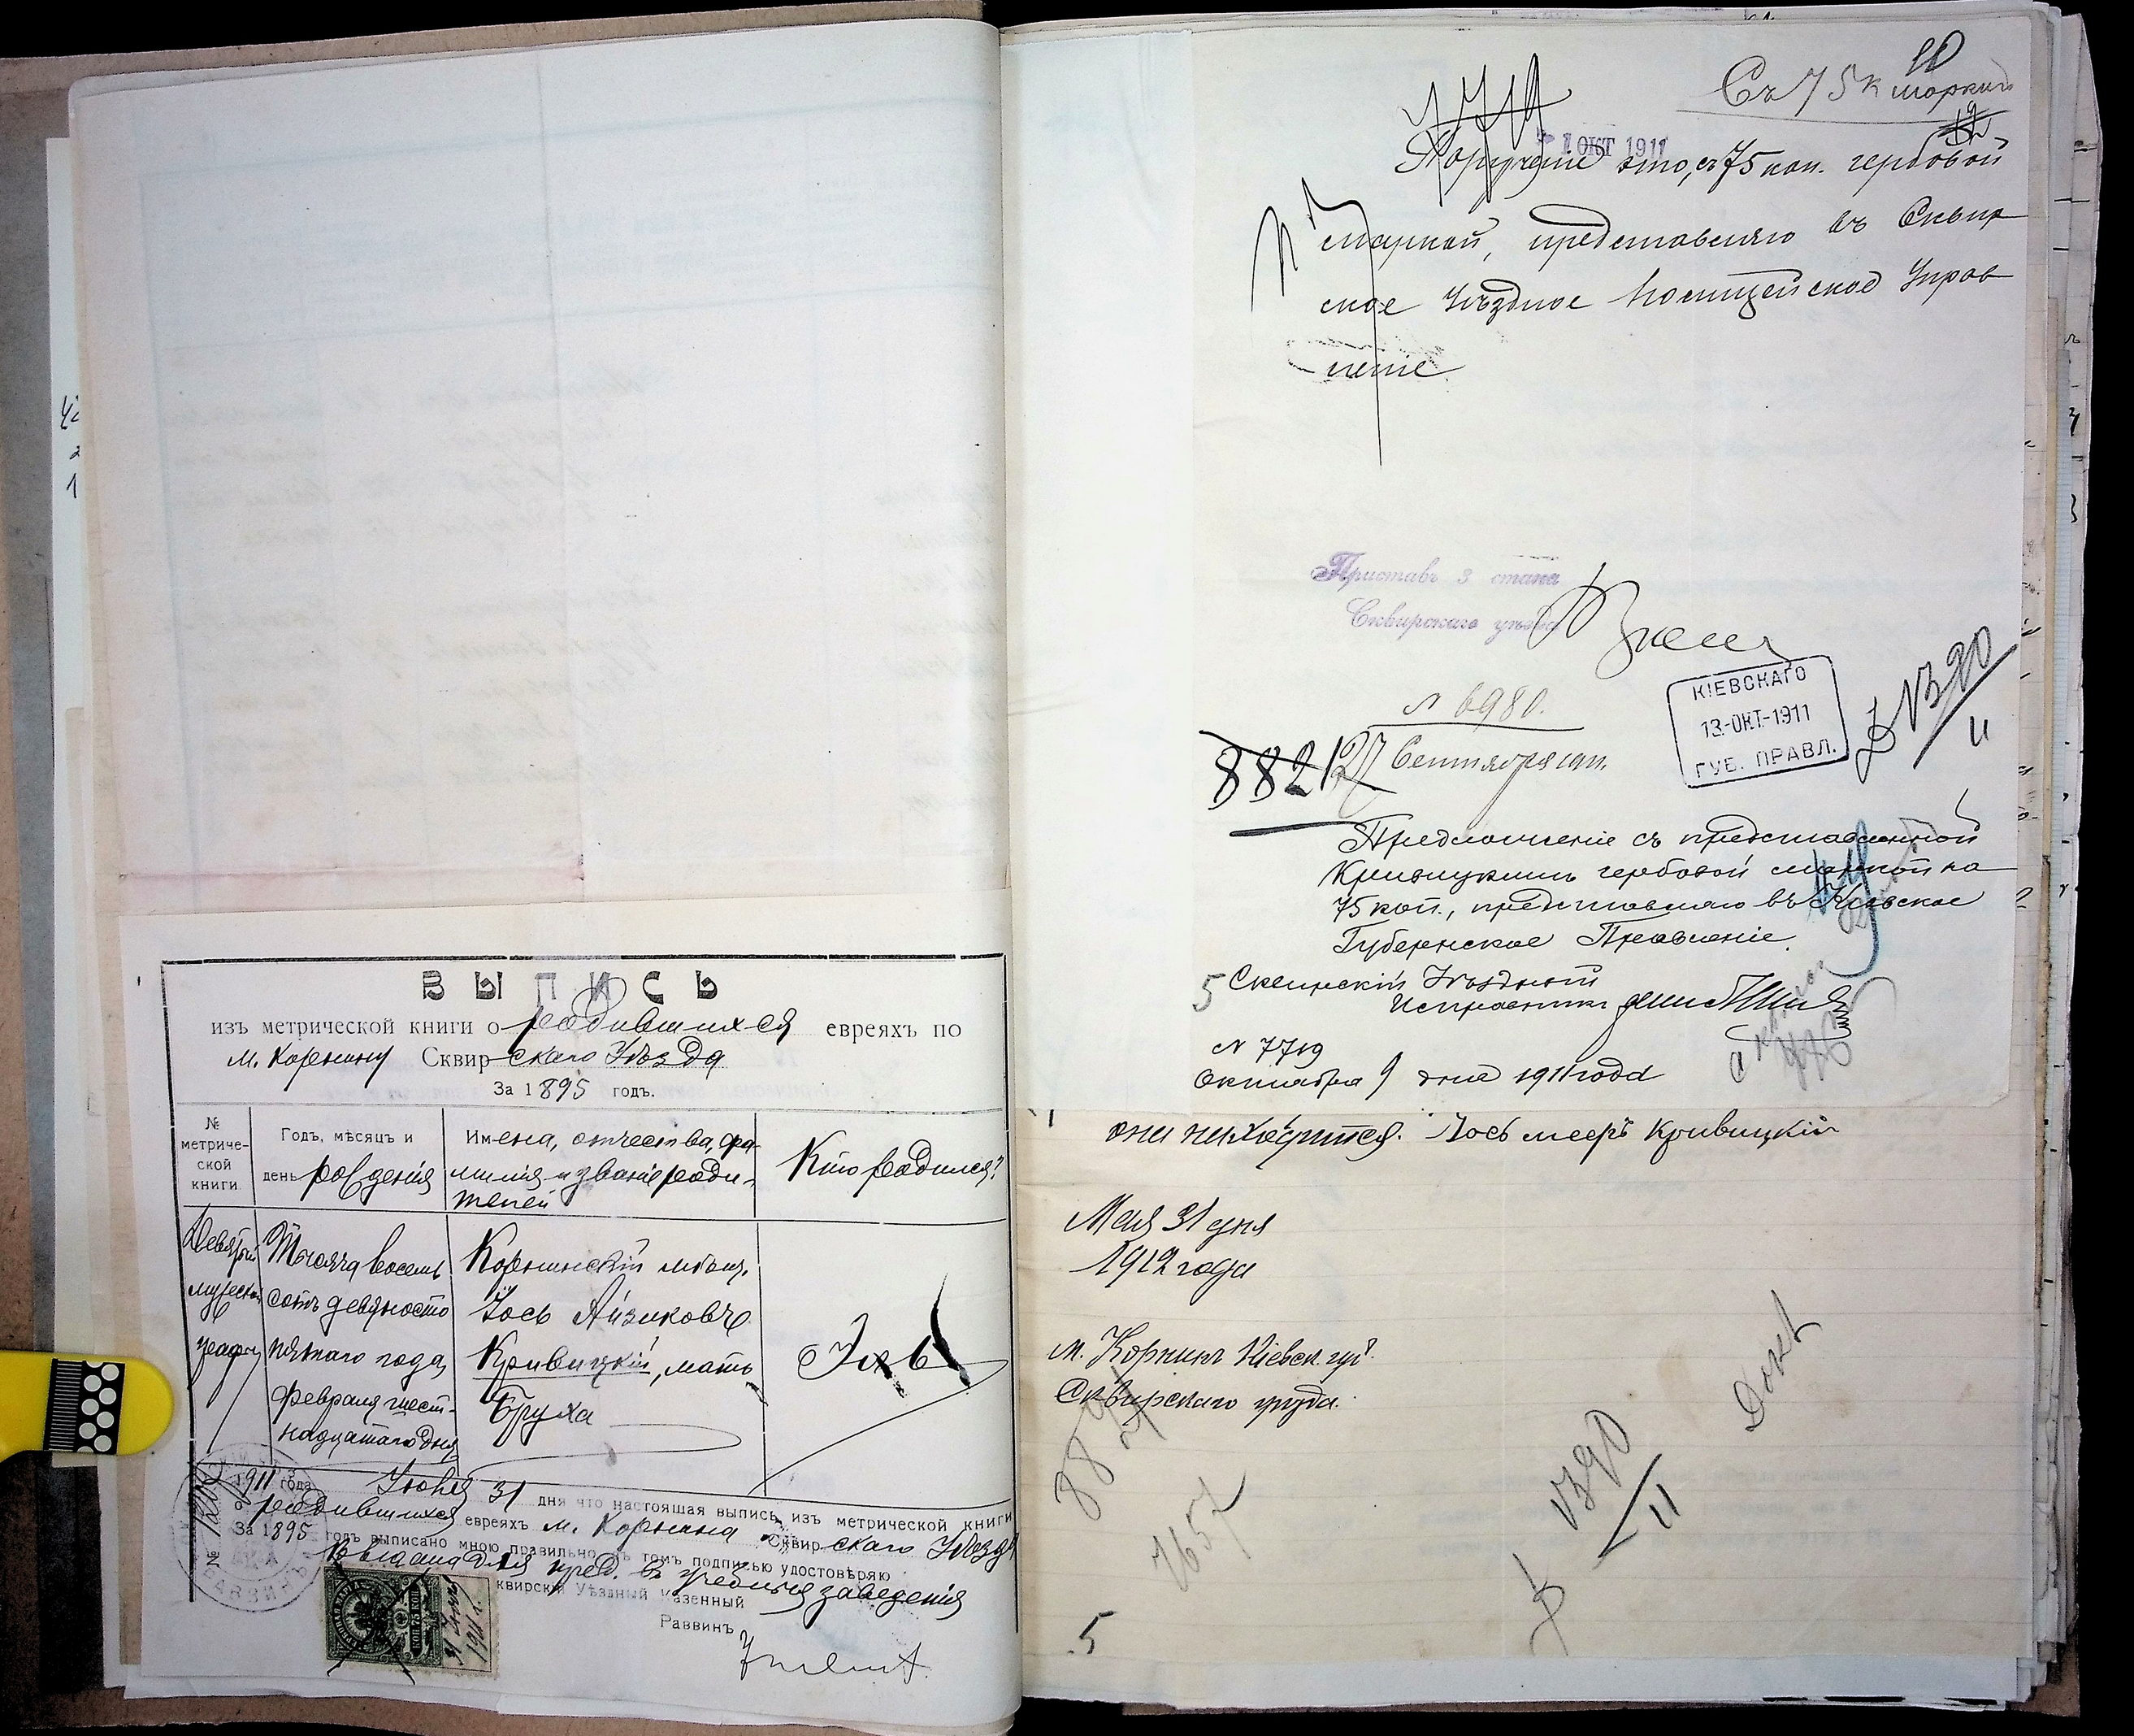 ВЫПИСЬ
изъ метрической книги о родившихся евреяхъ по
м. Корнину Сквирскаго Уѣзда
За 1895 годъ.
№ метриче-
ской
книги
Годъ, мѣсяцъ и
день рожденія
Имена, отчества, фа-
милія и званіе роди-
телей
Кто родился?
Девятый
Тысяча восемь
сотъ девяносто
пятаго года,
февраля шест-
надцатаго дня
Корнинскій мѣщ.
Іось Айзиковъ
Кривицкій, мать
Бруха
1911 года Іюля 31 дня что настоящая выпись изъ метрической книги
о родившихся евреяхъ м. Корнина Сквирскаго Уѣзда
За 1895 годъ выписано мною правильно въ томъ подписью удостовѣряю
Выдана для пред. въ учебныя заведенія
Сквирскій Уѣздный Казенный
Раввинъ
31 Іюля
1911 г.
10
Съ 75 к маркой
7719
1 ОКТ 1911
Порученіе это, съ 75 коп. гербовой
маркой, представляю въ Сквир
ское Уѣздное Полицейское Управ
леніе.
Приставъ 3 стана
Сквирскаго уѣзда
N 6980.
8821
27 Сентября 1911.
КІЕВСКАГО
13-ОКТ-1911
ГУБ. ПРАВЛ.
1390/11
Предложеніе съ представленной
Кривицкимъ гербовой маркой на
75 коп., представляю въ Кіевское
Губернское Правленіе.
5
Сквирскій Уѣздный
Исправникъ
N 7719
Октября 9 дня 1911 года
они находится. Іось мееръ Кривицкій
Мая 31 дня
1912 года
м. Корнинъ Кіевск. губ.
Сквирскаго уезда.
8821
1657
1390/11
5